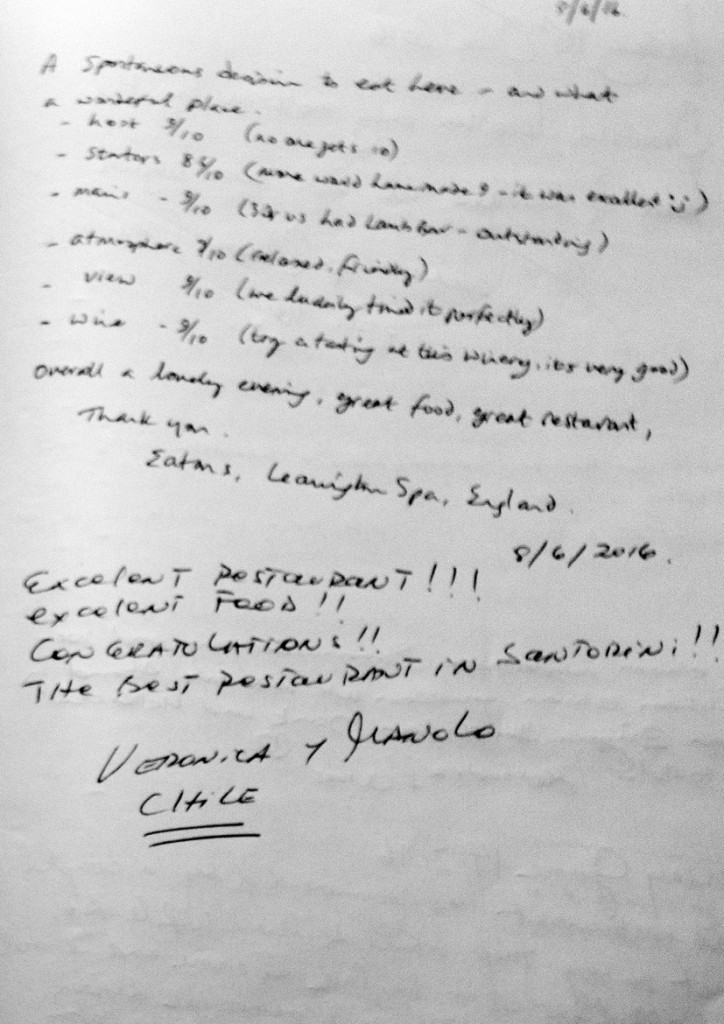 8/6/16.
A spontaneous decision to eat here - and what
a wonderful place.
- host 9/10 (no one gets 10)
- starters 8.5/10 (more home made - it was excellent :))
- mains - 9/10 (3 of us had Lamb - outstanding)
- atmosphere 9/10 (relaxed, friendly)
- view 9/10 (we luckily timed it perfectly)
- wine - 9/10 (try a tasting at this winery, its very good)
Overall a lovely evening, great food, great restaurant,
Thank you.
Eatons, Leamington Spa, England.
8/6/2016.
EXCELENT RESTAURANT!!!
EXCELENT FOOD!!
CONGRATULATIONS!!
THE BEST RESTAURANT IN SANTORINI!!
VERONICA Y MANOLO
CHILE